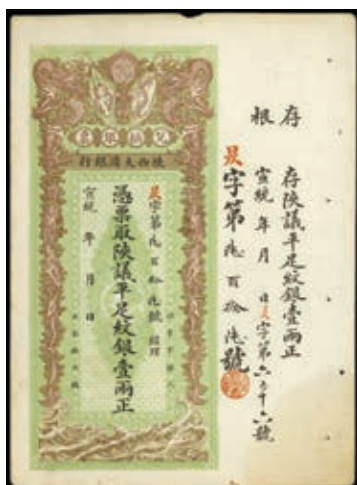 存根
存陝議平足紋銀壹兩正
宣統 年 月 日昃字第六百十六號
昃字第陸百拾陸號
兌換銀票
陝西大清銀行
昃字第陸百拾陸號 經理
憑票取陝議平足紋銀壹兩正
宣統 年 月 日